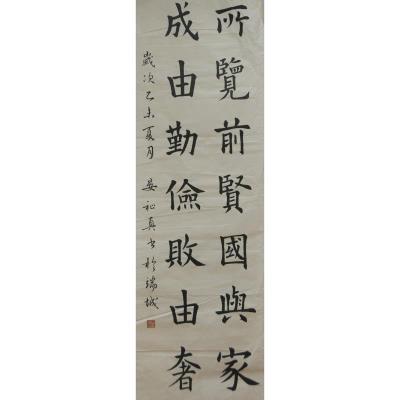 所覽前賢國與家
成由勤儉敗由奢
歲次乙未夏月 晏祉真书於瑞城